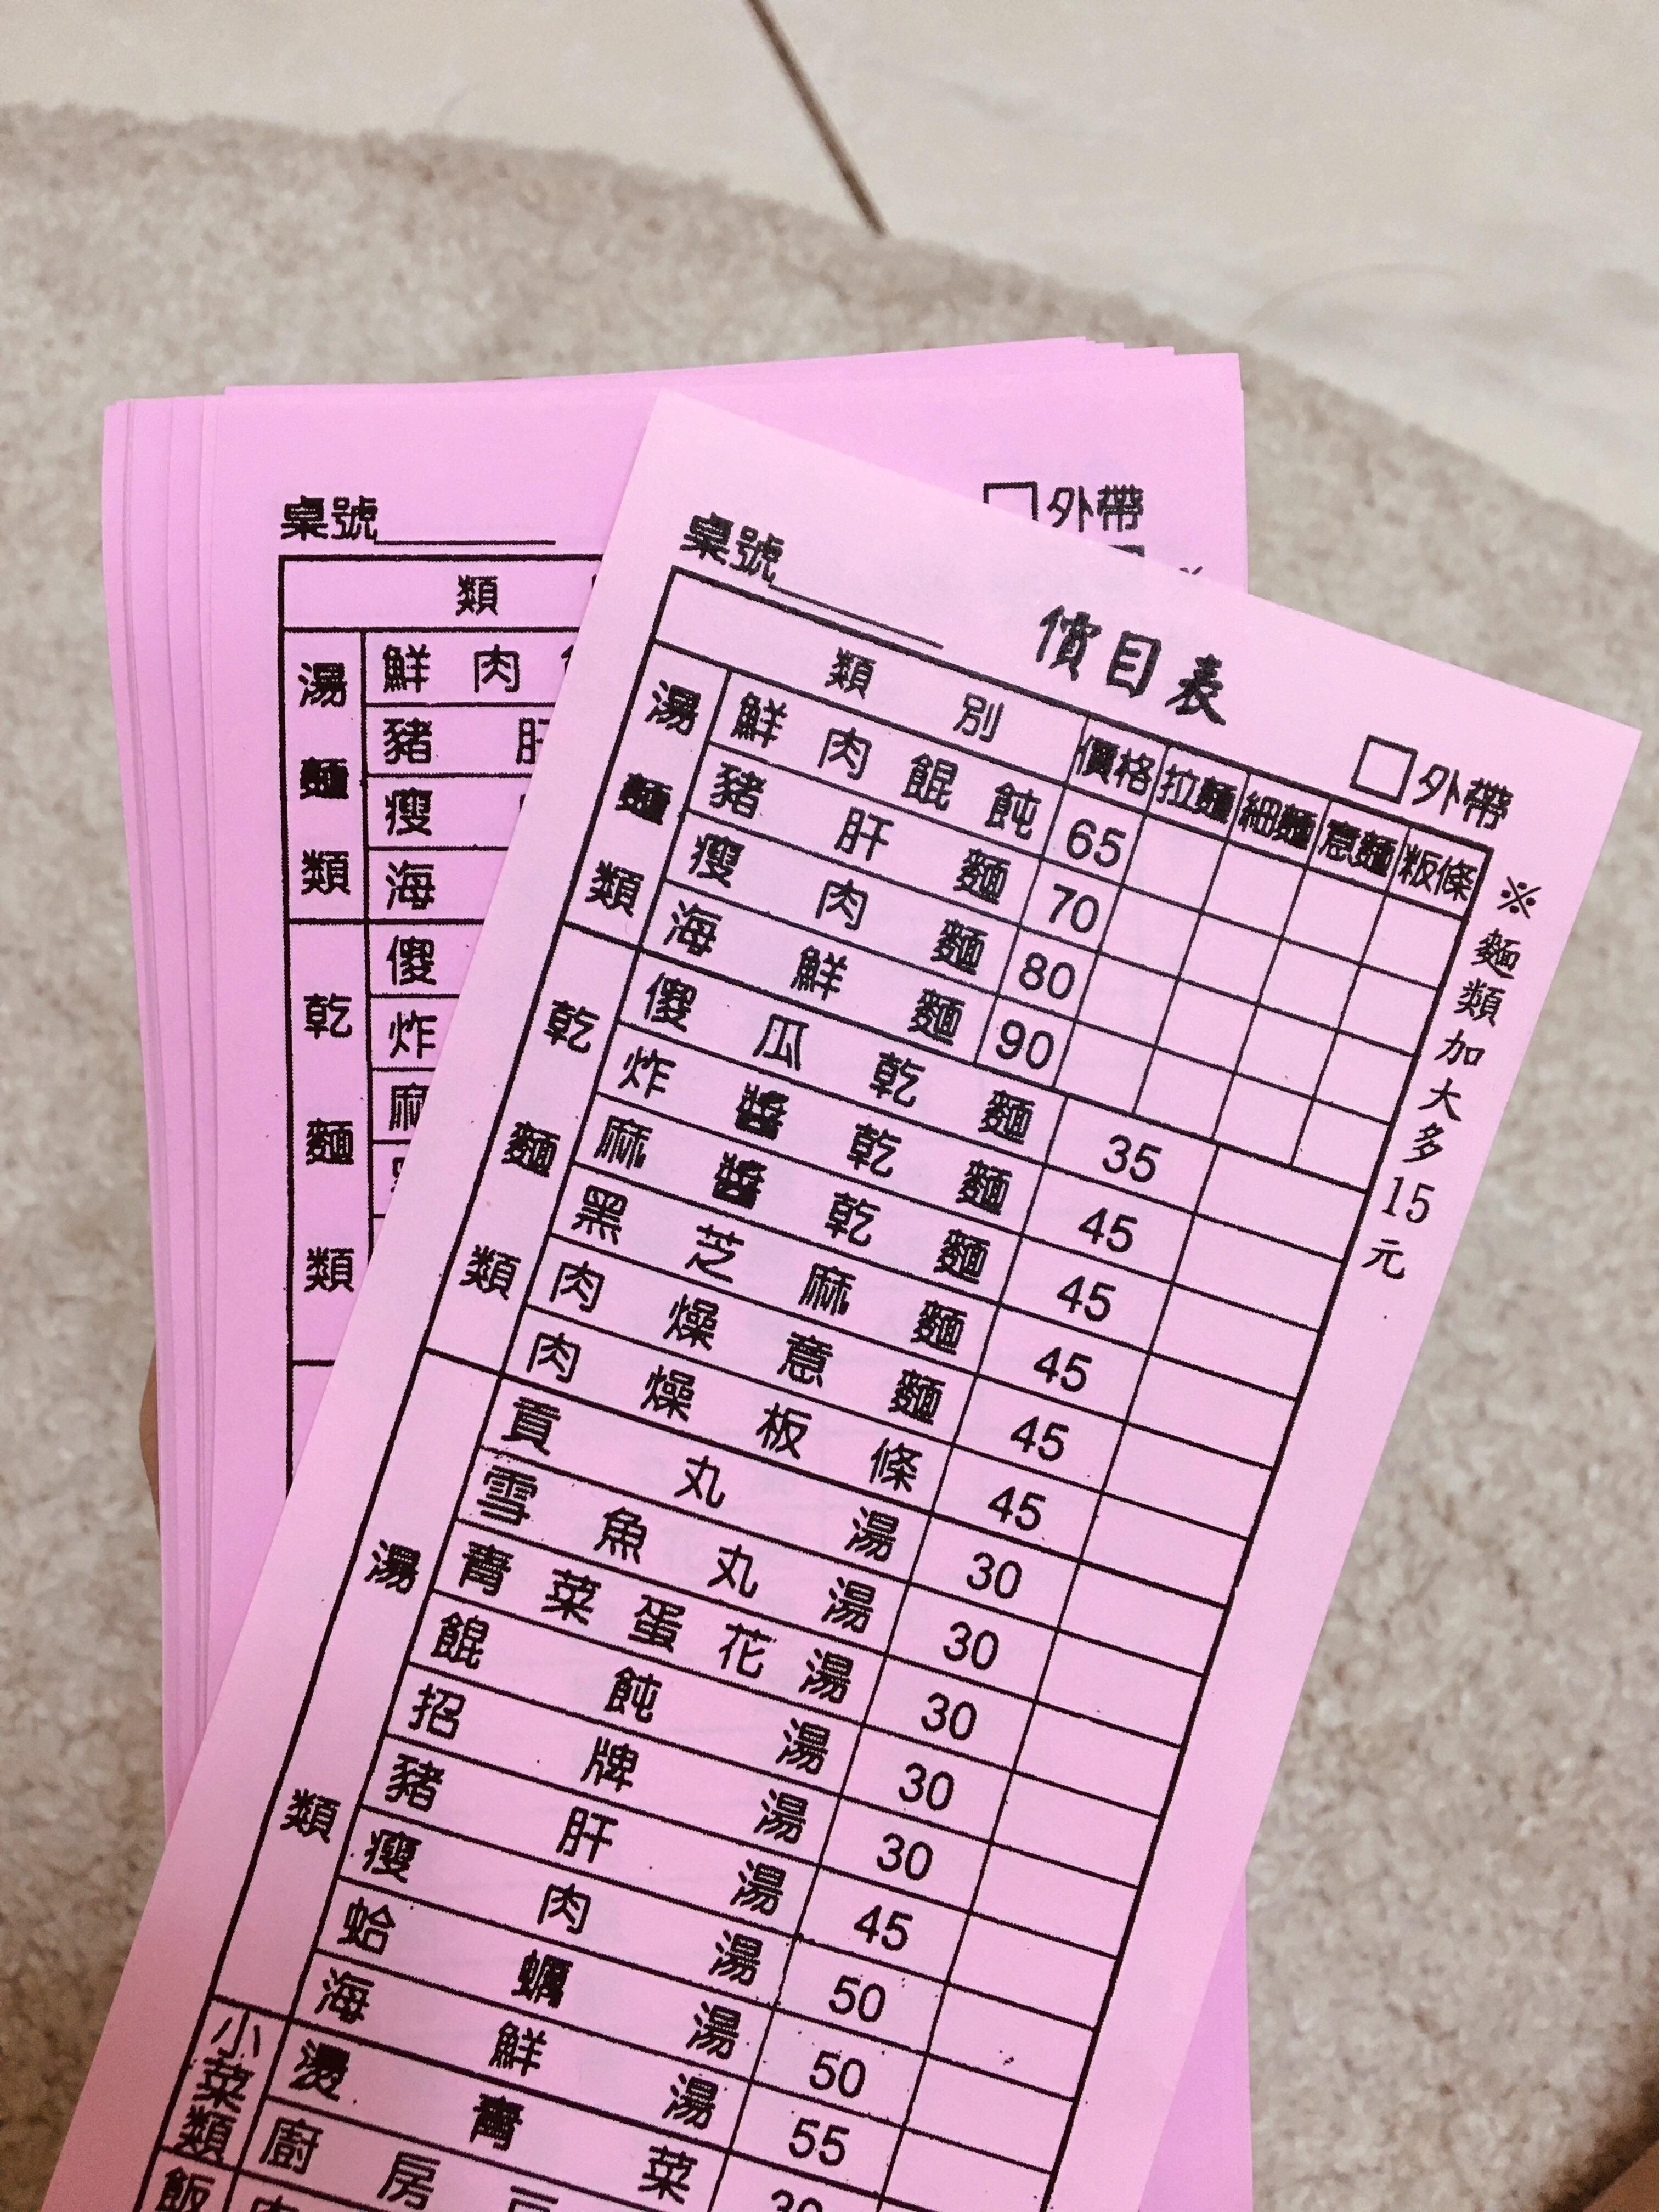 桌號
外帶
類
湯麵類
鮮肉
豬肝
瘦
海
乾麵類
傻
炸
麻
桌號
價目表
外帶
類別 價格 拉麵 細麵 意麵 粄條
湯麵類
鮮肉餛飩 65
豬肝麵 70
瘦肉麵 80
海鮮麵 90
乾麵類
傻瓜乾麵 35
炸醬乾麵 45
麻醬乾麵 45
黑芝麻麵 45
肉燥意麵 45
肉燥板條 45
湯類
貢丸湯 30
雪魚丸湯 30
青菜蛋花湯 30
餛飩湯 30
招牌湯 30
豬肝湯 45
瘦肉湯 50
蛤蠣湯 50
海鮮湯 55
小菜類
燙青菜 30
廚房
飯
※麵類加大多15元